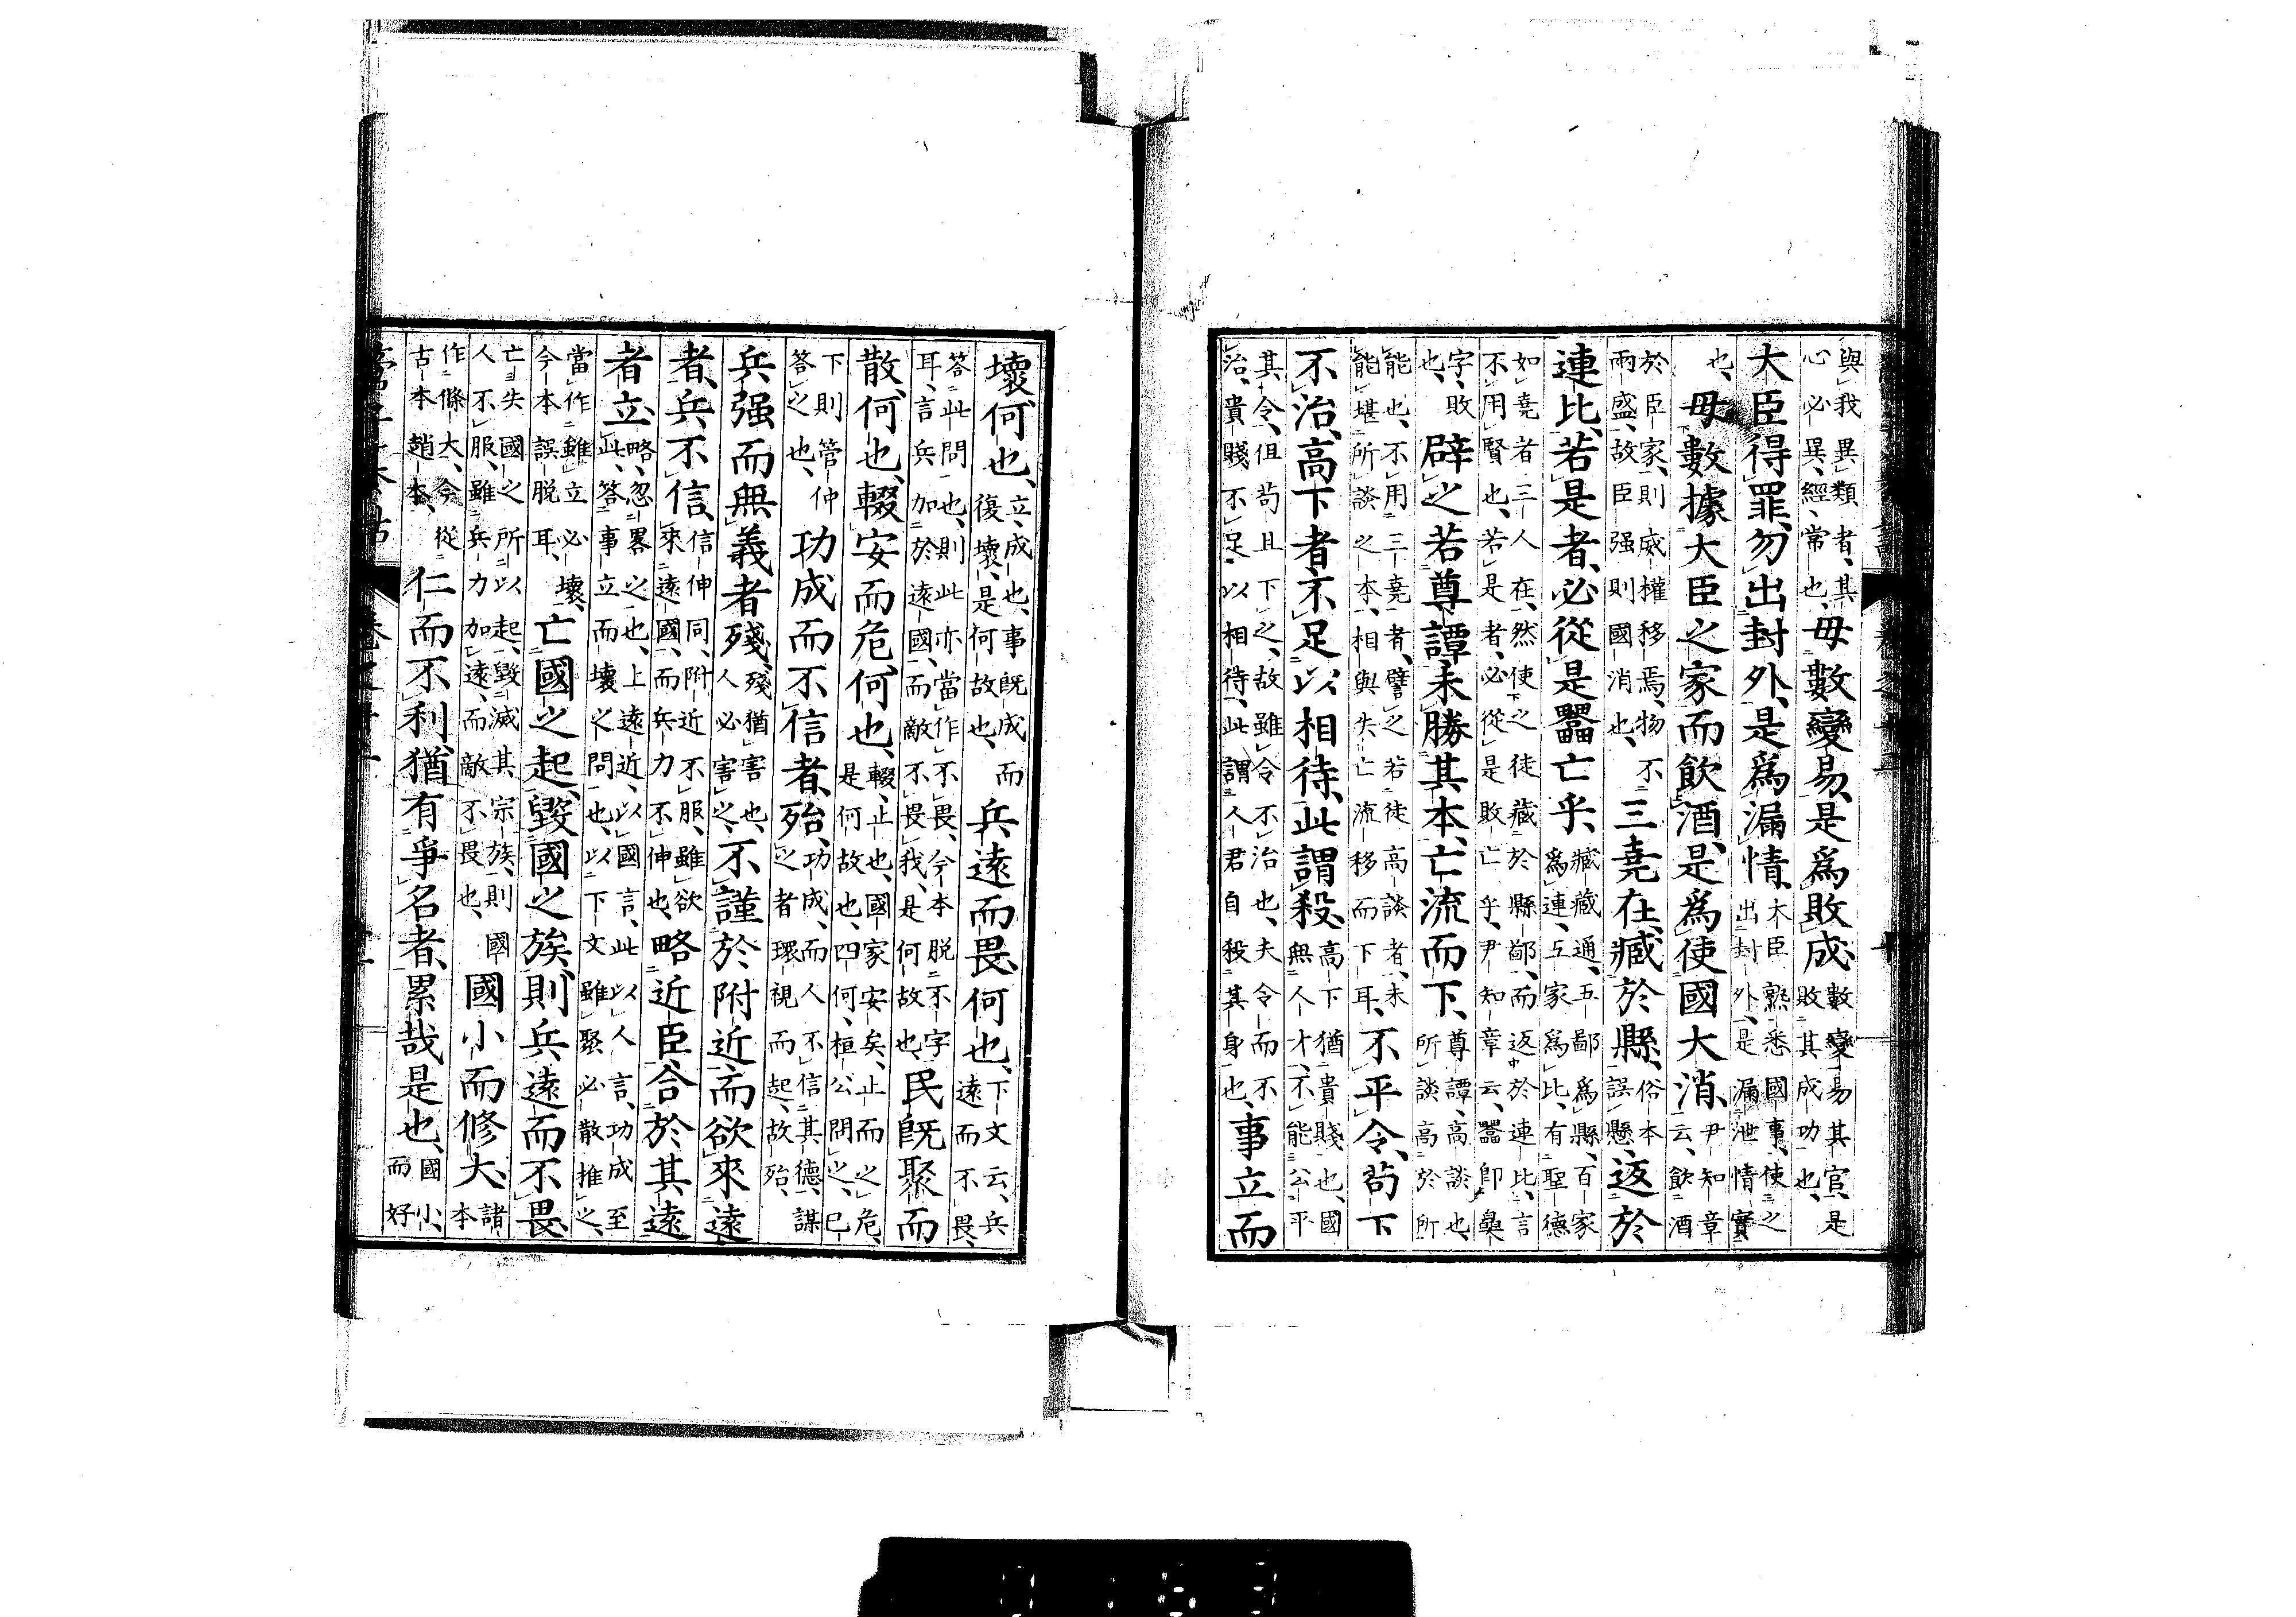 與我異類者、其心必異、經常也、毋數變易、是爲敗成、數變易其官、是敗其成功也、
大臣得罪、勿出封外、是爲漏情、大臣熟悉國事、使之出封外、是漏泄情實
也、毋數據大臣之家而飲酒、是爲使國大消、尹知章云、飲酒
於臣家、則威權移焉、物不兩盛、故臣强則國消也、三堯在、臧於縣、俗本誤懸、返於
連比、若是者、必從是㽮亡乎、臧藏通、五鄙爲縣、百家爲連、五家爲比、有聖德
如堯者三人在、然使之徒藏於縣鄙、而返於連比、言不用賢也、若是者、必從是敗亡乎、尹知章云、㽮卽㬥
字、敗也、辟之若尊譚未勝其本、亡流而下、尊譚、高談也、所談高於所
能也、不用三堯者、譬之若徒高談者、未能堪所談之本、相與失亡流移而下耳、不平令、苟下
不治、高下者、不足以相待、此謂殺、高下猶貴賤也、國無人才、不能公平
其令、但苟且下之、故雖令不治也、夫令而不治、貴賤不足以相待、此謂人君自殺其身也、事立而
壞、何也、立、成也、事旣成而復壞、是何故也、兵遠而畏、何也、下文云、兵遠而不畏、
答此問也、則此亦當作不畏、今本脱不字耳、言兵加於遠國、而敵不畏我、是何故也、民旣聚而
散、何也、輟安而危、何也、輟、止也、國家安矣、止而之危、是何故也、四何、桓公問之、已
下則管仲答之也、功成而不信者、殆、功成、而人不信其德、謀之者環視而起、故殆、
兵强而無義者殘、殘猶害也、人必害之、不謹於附近、而欲來遠
者、兵不信、信伸同、附近不服、雖欲來遠國、而兵力不伸也、略近臣、合於其遠
者立、略、忽畧之也、上遠近、以國言、此以人言、功成至此、答事立而壞之問也、以下文雖聚必散推之、
當作雖立必壞、今本誤脱耳、亡國之起、毀國之族、則兵遠而不畏、
亡失國之所以起、毀滅其宗族、則國人不服、雖兵力加遠、而敵不畏也、國小而修大、諸本
作條大、今從古本趙本、仁而不利、猶有爭名者、累哉是也、國小、而好